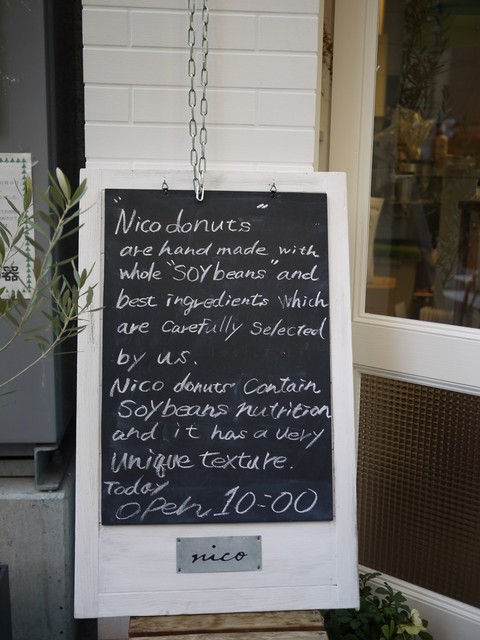 "Nico donuts"
are hand made with
whole "SOYbeans" and
best ingredients which
are carefully selected
by us.
Nico donuts contain
Soybeans nutrition
and it has a very
unique texture.
Today
open 10:00
nico